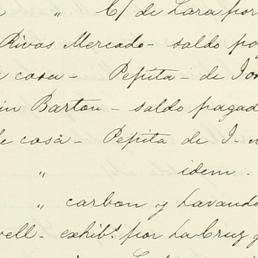 " C/ de Lara por
Rivas Mercado - saldo po
casa - Pepita - de
in Barton - saldo pagad
de casa - Pepita de
" idem -
" carbon y Lavanda
well - exhib.s por La Cruz y